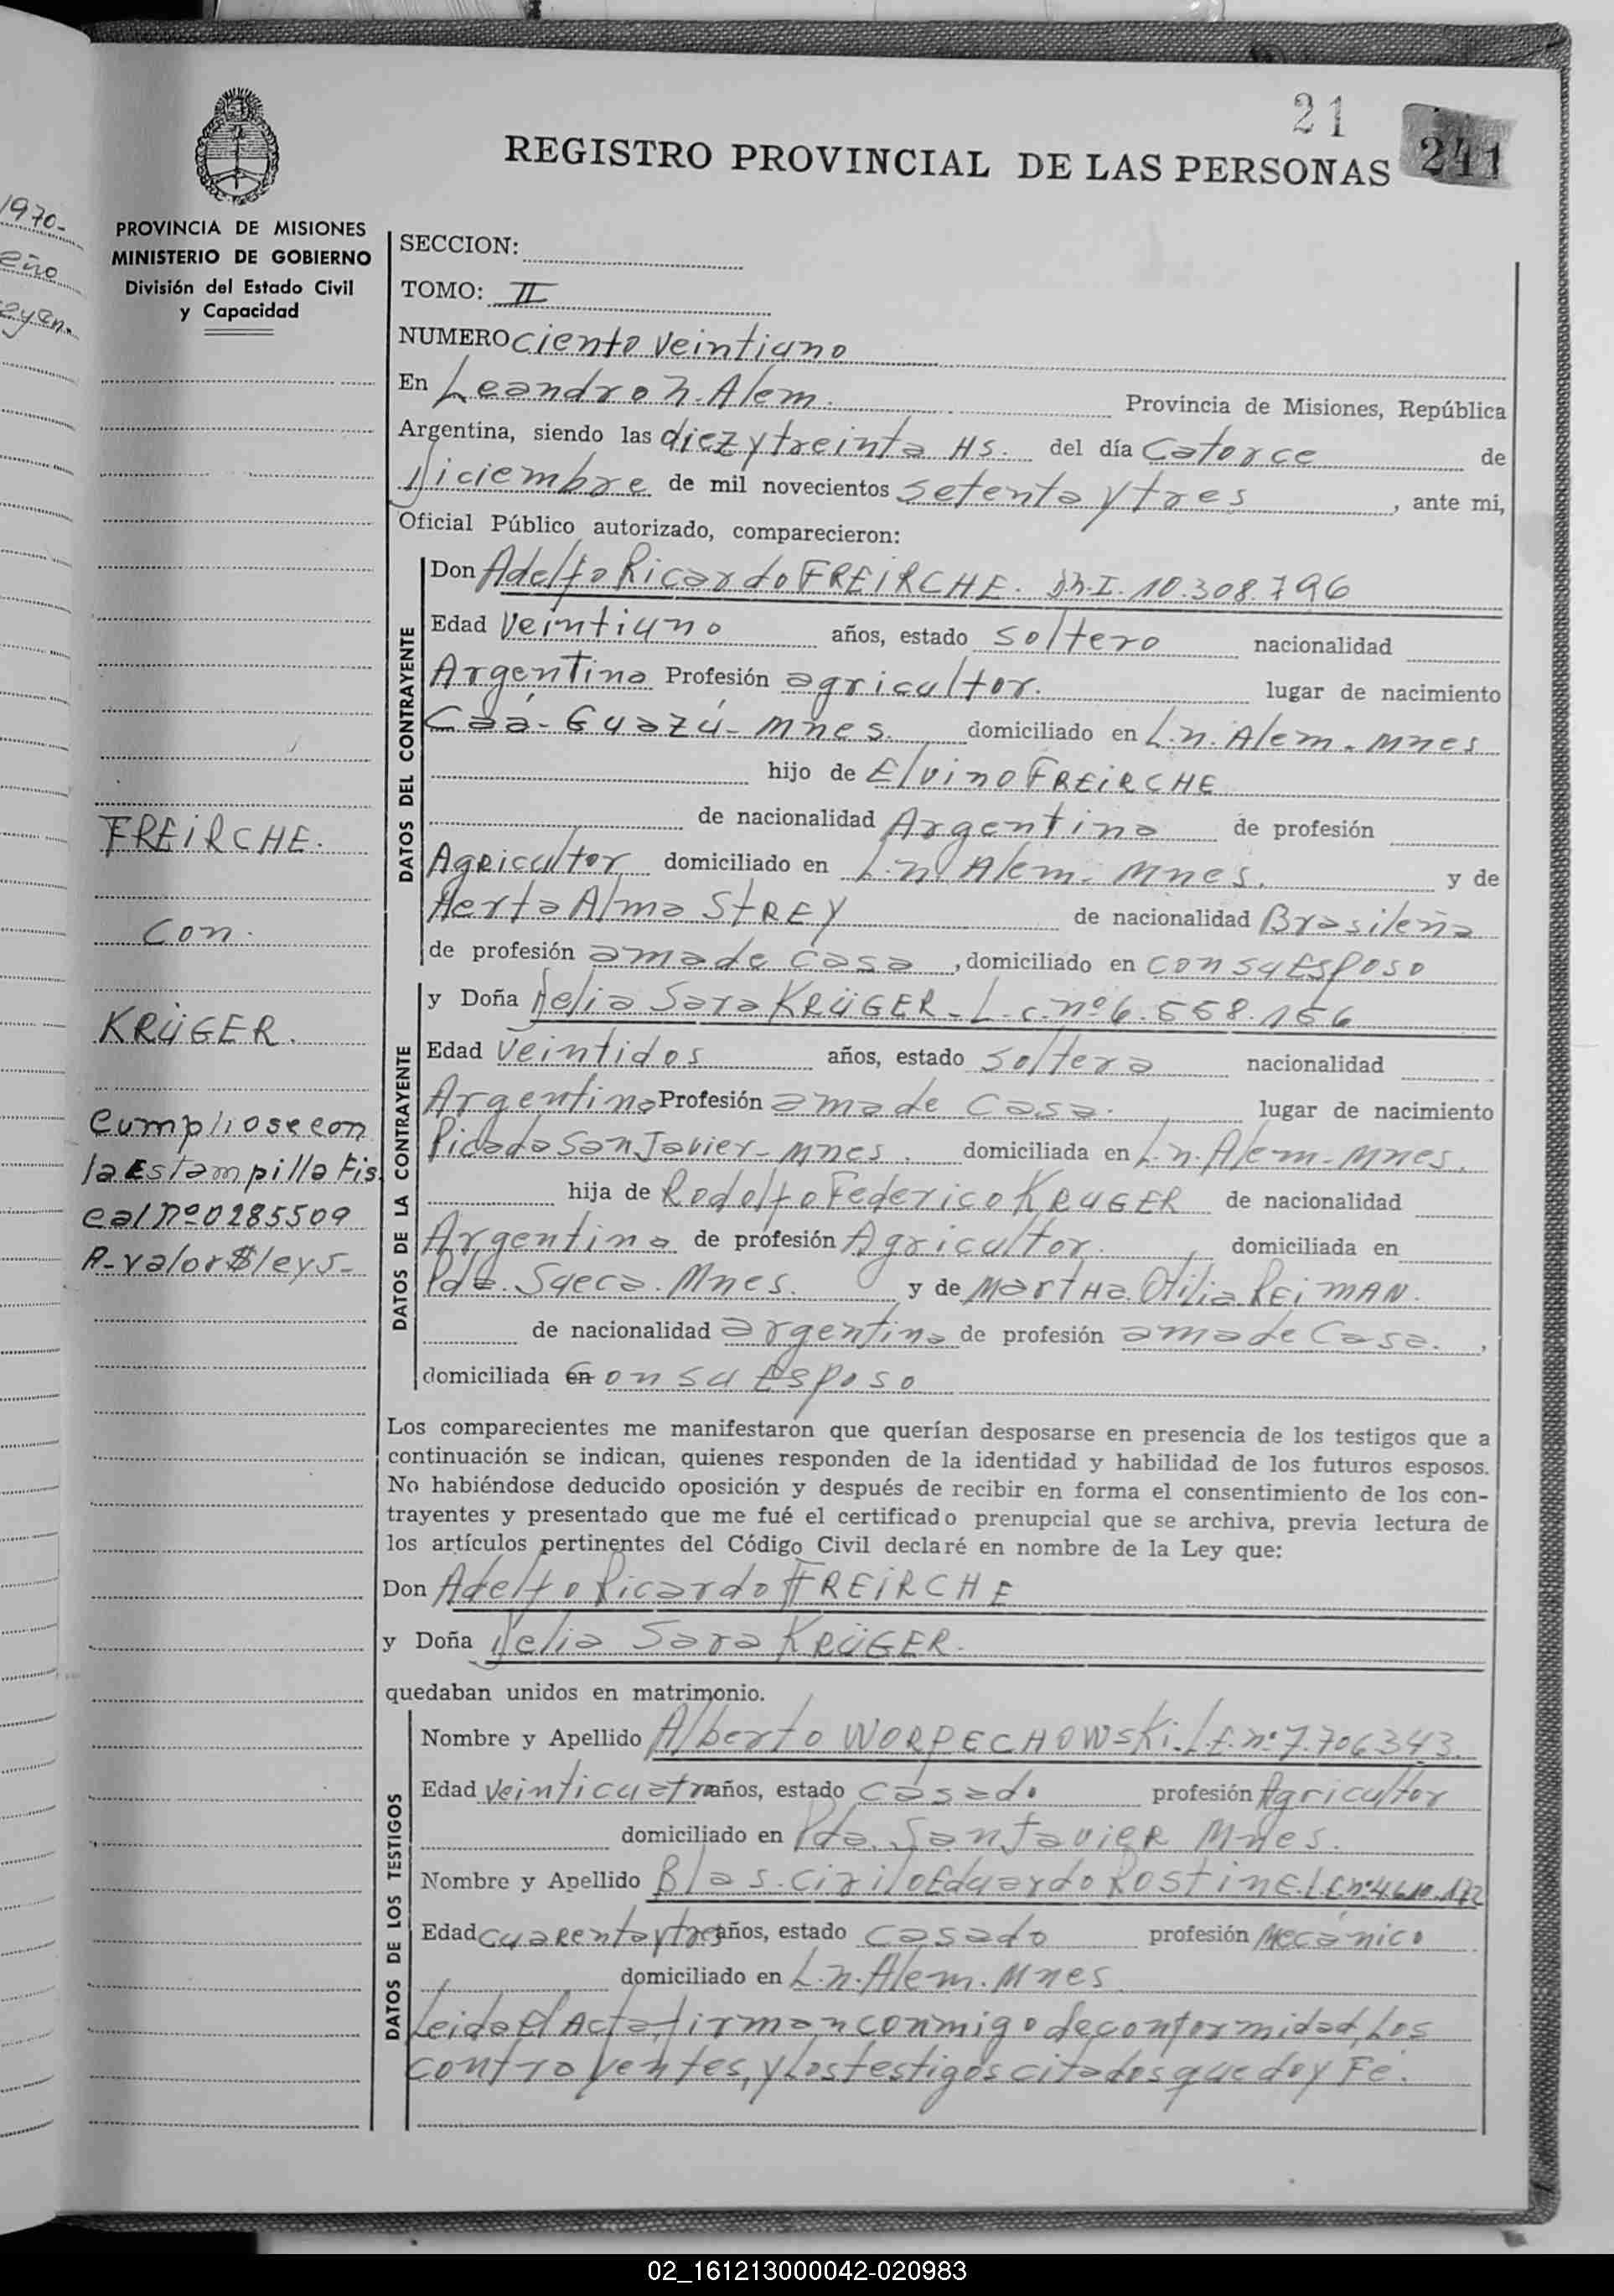 21
241
REGISTRO PROVINCIAL DE LAS PERSONAS
PROVINCIA DE MISIONES
MINISTERIO DE GOBIERNO
División del Estado Civil
y Capacidad
1970-
SECCION:
TOMO: II
NUMERO ciento veintiuno
En Leandro N. Alem. Provincia de Misiones, República
Argentina, siendo las diez y treinta Hs. del día Catorce de
Diciembre de mil novecientos setenta y tres, ante mi,
Oficial Público autorizado, comparecieron:
DATOS DEL CONTRAYENTE
Don Adelfo Ricardo FREIRCHE. D.N.I. 10.308.796
Edad Veintiuno años, estado soltero nacionalidad
Argentina Profesión agricultor. lugar de nacimiento
Caá-Guazú-Mnes. domiciliado en L.N. Alem. Mnes
hijo de Elvino FREIRCHE
de nacionalidad Argentina de profesión
Agricultor domiciliado en L.N. Alem. Mnes. y de
Herta Alma STREY de nacionalidad Brasileña
de profesión ama de casa, domiciliado en con su Esposo
DATOS DE LA CONTRAYENTE
y Doña Delia Sara KRÜGER-L.c.nº 6.558.156
Edad Veintidos años, estado soltera nacionalidad
Argentina Profesión ama de Casa. lugar de nacimiento
Picada San Javier-Mnes. domiciliada en L.N. Alem-Mnes.
hija de Rodolfo Federico KRUGER de nacionalidad
Argentina de profesión Agricultor. domiciliada en
Pda. Sueca. Mnes. y de Martha Otilia REIMAN.
de nacionalidad argentina de profesión ama de Casa.,
domiciliada en con su Esposo
FREIRCHE.
Con.
KRÜGER.
Cumpliose con
la Estampilla Fis
cal nº 0285509
A-valor $ ley 5-
Los comparecientes me manifestaron que querían desposarse en presencia de los testigos que a
continuación se indican, quienes responden de la identidad y habilidad de los futuros esposos.
No habiéndose deducido oposición y después de recibir en forma el consentimiento de los con-
trayentes y presentado que me fué el certificado prenupcial que se archiva, previa lectura de
los artículos pertinentes del Código Civil declaré en nombre de la Ley que:
Don Adelfo Ricardo FREIRCHE
y Doña Delia Sara KRÜGER.
quedaban unidos en matrimonio.
DATOS DE LOS TESTIGOS
Nombre y Apellido Alberto WORPECHOWSKi. L.E. nº 7.706.343.
Edad Veinticuatro años, estado casado profesión Agricultor
domiciliado en Pda. San Javier Mnes.
Nombre y Apellido Blas. Cirilo Eduardo ROSTINE. L.E. nº 4.610.172
Edad cuarenta y tres años, estado casado profesión Mecánico
domiciliado en L.N. Alem. Mnes
Leida el Acta, firman conmigo de conformidad, Los
contrayentes, y Los testigos citados que doy Fé.
02_161213000042-020983